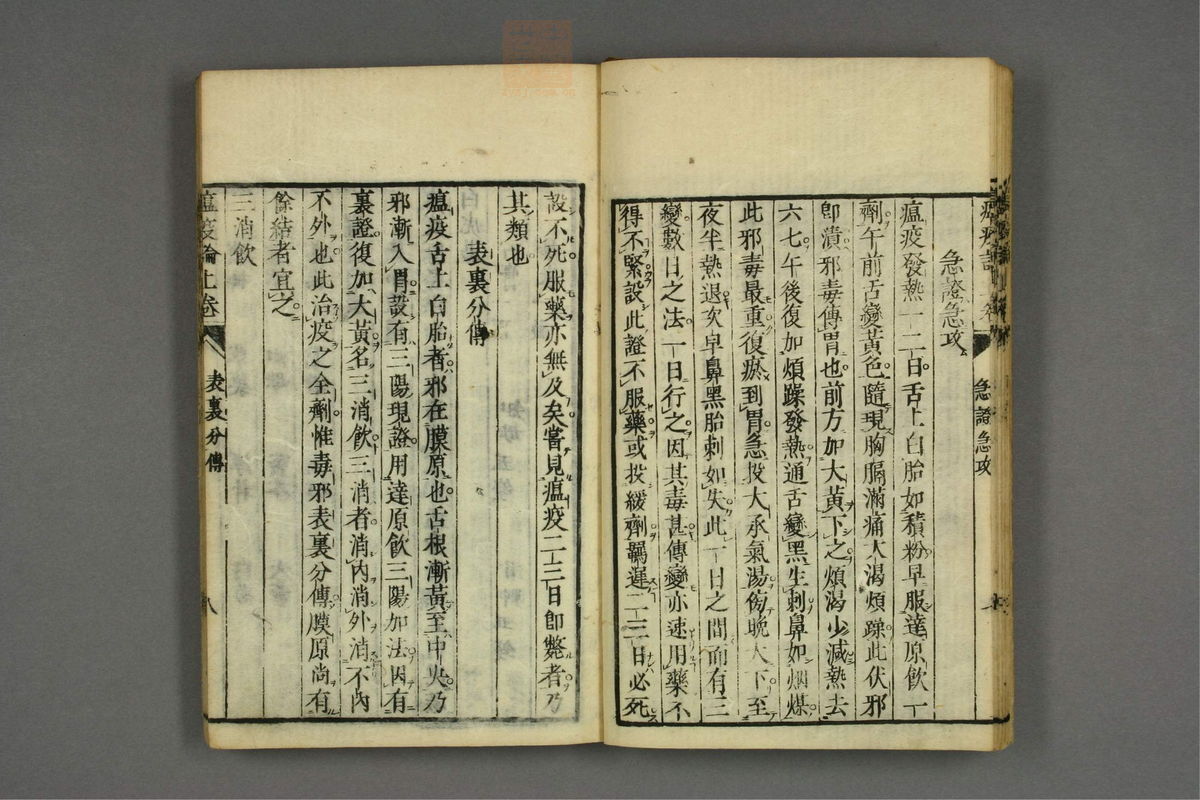 急證急攻
瘟疫發熱一二日舌上白胎如積粉早服達原飲一
劑午前舌變黃色隨現胸膈滿痛大渴煩躁此伏邪
即潰邪毒傳胃也前方加大黃下之煩渴少減熱去
六七午後復加煩躁發熱通舌變黑生刺鼻如烟煤
此邪毒最重復瘀到胃急投大承氣湯傍晚大下至
夜半熱退次早鼻黑胎刺如失此一日之間而有三
變數日之法一日行之因其毒甚傳變亦速用藥不
得不緊設此證不服藥或投緩劑羈遲二三日必死
急證急攻
設不死服藥亦無及矣嘗見瘟疫二三日即斃者乃
其類也
表裏分傳
瘟疫舌上白胎者邪在膜原也舌根漸黃至中央乃
邪漸入胃設有三陽現證用達原飲三陽加法因有
裏證復加大黃名三消飲三消者消內消外消不內
不外也此治疫之全劑惟毒邪表裏分傳膜原尚有
餘結者宜之
三消飲
瘟疫論上卷 表裏分傳 八